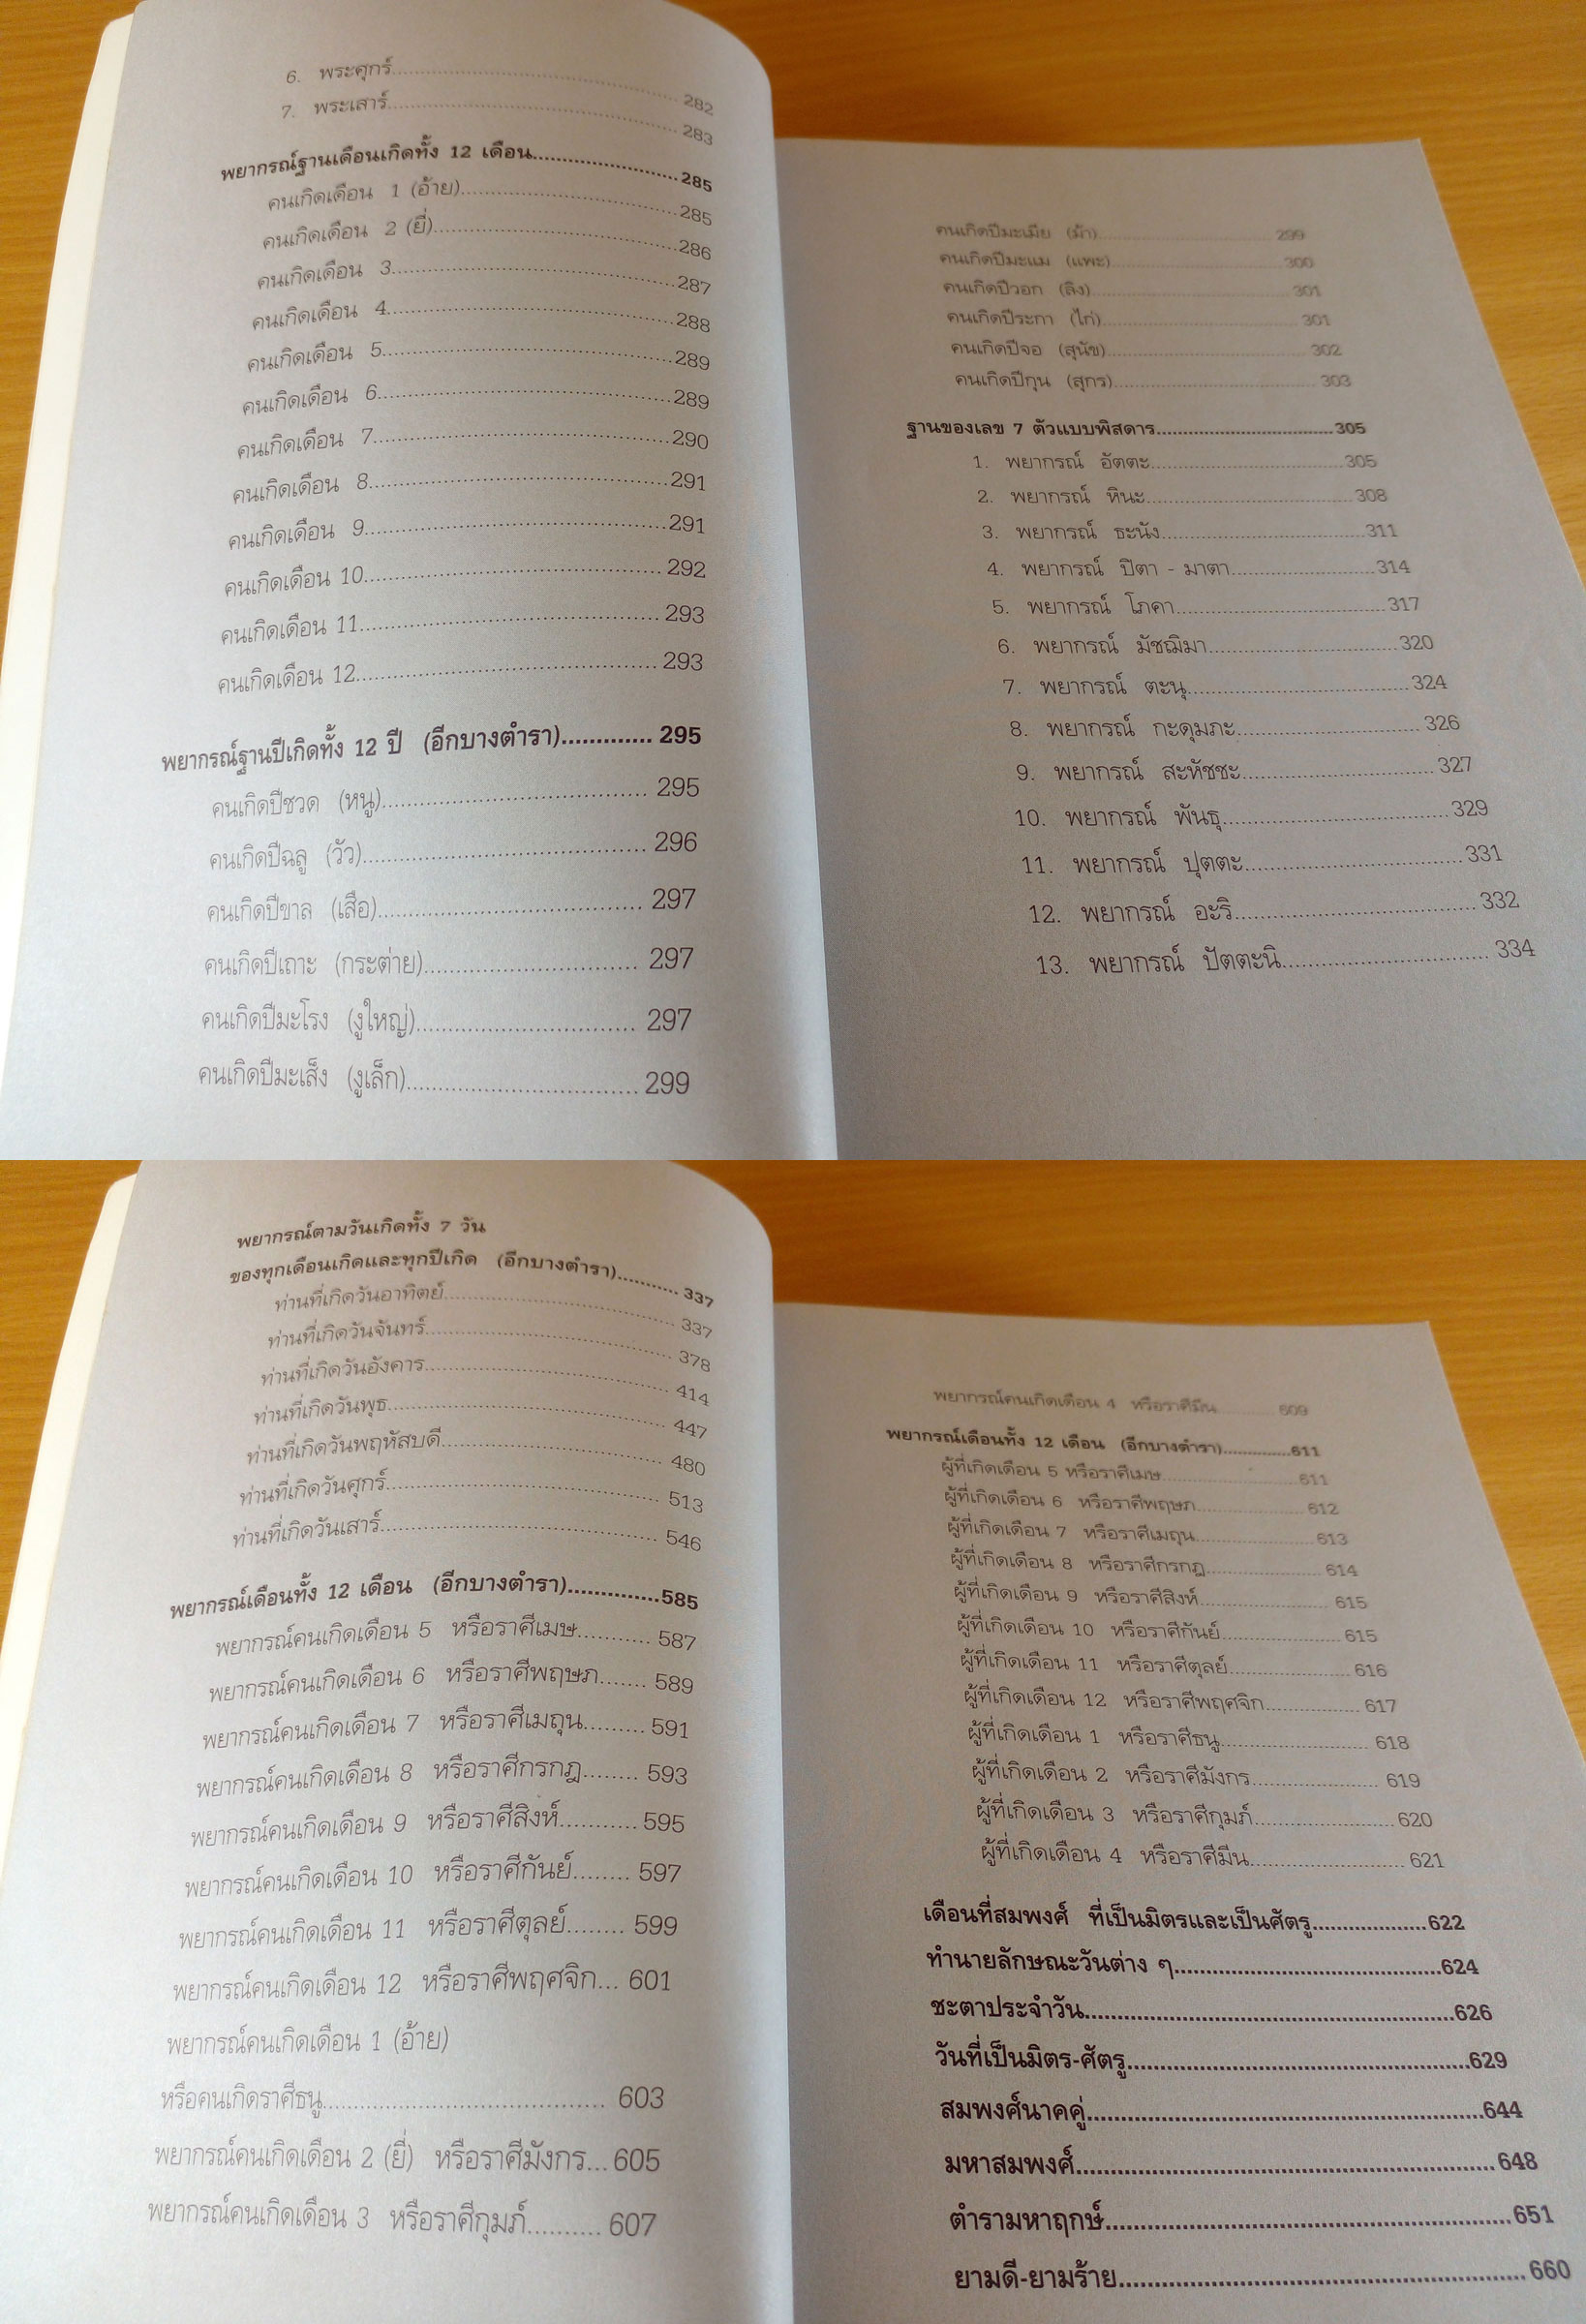 6. พระศุกร์........................282
7. พระเสาร์........................283
พยากรณ์ฐานเดือนเกิดทั้ง 12 เดือน........................285
คนเกิดเดือน 1 (อ้าย)........................285
คนเกิดเดือน 2 (ยี่)........................286
คนเกิดเดือน 3........................287
คนเกิดเดือน 4........................288
คนเกิดเดือน 5........................289
คนเกิดเดือน 6........................289
คนเกิดเดือน 7........................290
คนเกิดเดือน 8........................291
คนเกิดเดือน 9........................291
คนเกิดเดือน 10........................292
คนเกิดเดือน 11........................293
คนเกิดเดือน 12........................293
พยากรณ์ฐานปีเกิดทั้ง 12 ปี (อีกบางตำรา)............. 295
คนเกิดปีชวด (หนู)........................ 295
คนเกิดปีฉลู (วัว)........................ 296
คนเกิดปีขาล (เสือ)........................ 297
คนเกิดปีเถาะ (กระต่าย)........................ 297
คนเกิดปีมะโรง (งูใหญ่)........................ 297
คนเกิดปีมะเส็ง (งูเล็ก)........................ 299
คนเกิดปีมะเมีย (ม้า)........................ 299
คนเกิดปีมะแม (แพะ)........................300
คนเกิดปีวอก (ลิง)........................301
คนเกิดปีระกา (ไก่)........................301
คนเกิดปีจอ (สุนัข)........................302
คนเกิดปีกุน (สุกร)........................303
ฐานของเลข 7 ตัวแบบพิสดาร........................305
1. พยากรณ์ อัตตะ........................305
2. พยากรณ์ หินะ........................308
3. พยากรณ์ ธะนัง........................311
4. พยากรณ์ ปิตา - มาตา........................314
5. พยากรณ์ โภคา........................317
6. พยากรณ์ มัชฌิมา........................320
7. พยากรณ์ ตะนุ........................324
8. พยากรณ์ กะดุมภะ........................326
9. พยากรณ์ สะหัชชะ........................327
10. พยากรณ์ พันธุ........................329
11. พยากรณ์ ปุตตะ........................331
12. พยากรณ์ อะริ........................332
13. พยากรณ์ ปัตตะนิ........................334
พยากรณ์ตามวันเกิดทั้ง 7 วัน
ของทุกเดือนเกิดและทุกปีเกิด (อีกบางตำรา)........... 337
ท่านที่เกิดวันอาทิตย์........................ 337
ท่านที่เกิดวันจันทร์........................ 378
ท่านที่เกิดวันอังคาร........................ 414
ท่านที่เกิดวันพุธ........................ 447
ท่านที่เกิดวันพฤหัสบดี........................ 480
ท่านที่เกิดวันศุกร์........................ 513
ท่านที่เกิดวันเสาร์........................ 546
พยากรณ์เดือนทั้ง 12 เดือน (อีกบางตำรา).............585
พยากรณ์คนเกิดเดือน 5 หรือราศีเมษ........... 587
พยากรณ์คนเกิดเดือน 6 หรือราศีพฤษภ....... 589
พยากรณ์คนเกิดเดือน 7 หรือราศีเมถุน......... 591
พยากรณ์คนเกิดเดือน 8 หรือราศีกรกฎ........ 593
พยากรณ์คนเกิดเดือน 9 หรือราศีสิงห์........... 595
พยากรณ์คนเกิดเดือน 10 หรือราศีกันย์........ 597
พยากรณ์คนเกิดเดือน 11 หรือราศีตุลย์........ 599
พยากรณ์คนเกิดเดือน 12 หรือราศีพฤศจิก... 601
พยากรณ์คนเกิดเดือน 1 (อ้าย)
หรือคนเกิดราศีธนู........................ 603
พยากรณ์คนเกิดเดือน 2 (ยี่) หรือราศีมังกร...605
พยากรณ์คนเกิดเดือน 3 หรือราศีกุมภ์.......... 607
พยากรณ์คนเกิดเดือน 4 หรือราศีมีน............ 609
พยากรณ์เดือนทั้ง 12 เดือน (อีกบางตำรา).............611
ผู้ที่เกิดเดือน 5 หรือราศีเมษ........................611
ผู้ที่เกิดเดือน 6 หรือราศีพฤษภ........................612
ผู้ที่เกิดเดือน 7 หรือราศีเมถุน........................613
ผู้ที่เกิดเดือน 8 หรือราศีกรกฎ........................614
ผู้ที่เกิดเดือน 9 หรือราศีสิงห์........................ 615
ผู้ที่เกิดเดือน 10 หรือราศีกันย์........................615
ผู้ที่เกิดเดือน 11 หรือราศีตุลย์........................616
ผู้ที่เกิดเดือน 12 หรือราศีพฤศจิก.................. 617
ผู้ที่เกิดเดือน 1 หรือราศีธนู........................ 618
ผู้ที่เกิดเดือน 2 หรือราศีมังกร........................ 619
ผู้ที่เกิดเดือน 3 หรือราศีกุมภ์........................620
ผู้ที่เกิดเดือน 4 หรือราศีมีน........................ 621
เดือนที่สมพงศ์ ที่เป็นมิตรและเป็นศัตรู....................622
ทำนายลักษณะวันต่าง ๆ........................624
ชะตาประจำวัน........................626
วันที่เป็นมิตร-ศัตรู........................629
สมพงศ์นาคคู่........................644
มหาสมพงศ์........................648
ตำรามหาฤกษ์........................651
ยามดี-ยามร้าย........................660